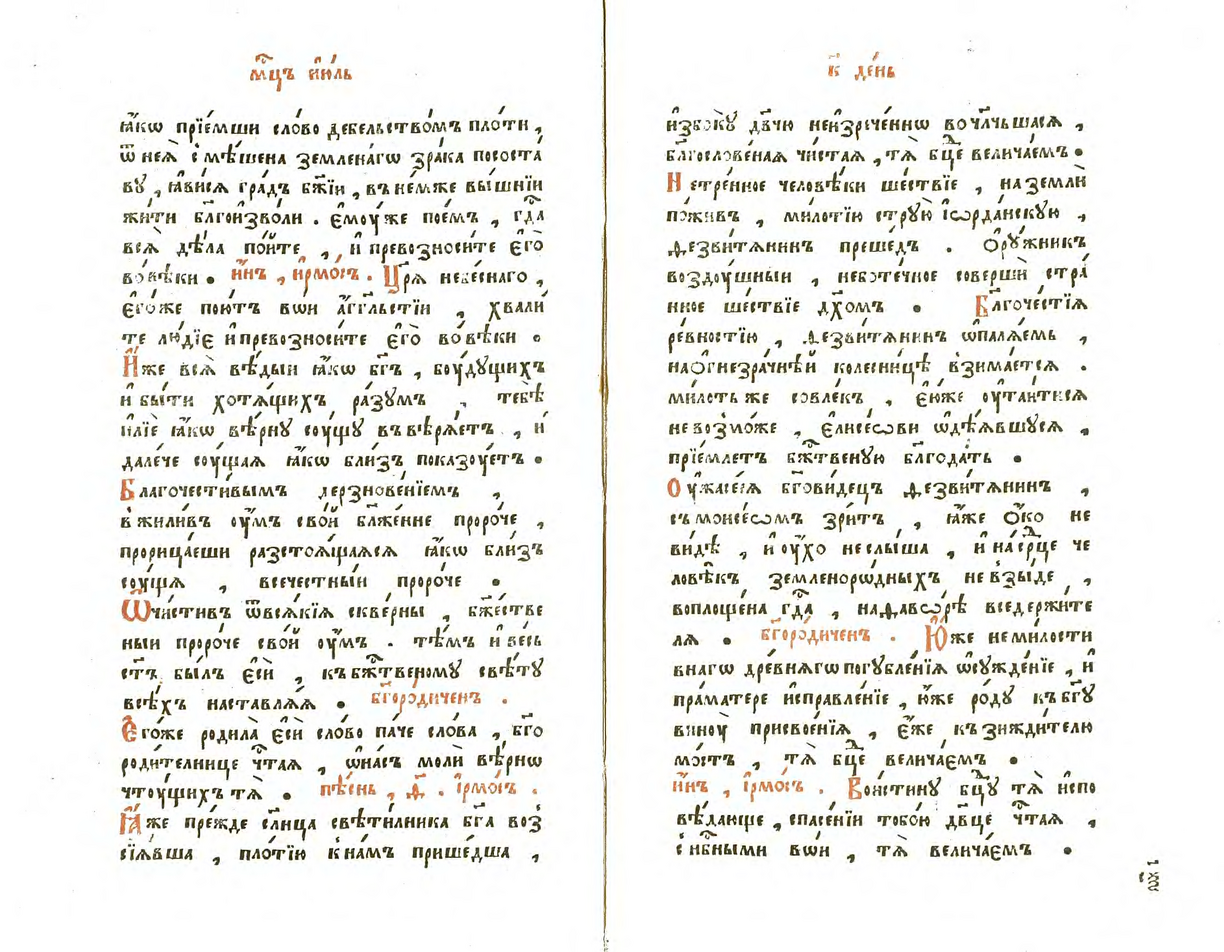 мⷭ҇цъ і҆ю́ль
ꙗ҆́кѡ прїе́мши сло́во дебельство́мъ пло́ти ,
ѿ неѧ̀ смѣ́шена земле́нагѡ зра́ка пососта́
вꙋ , ꙗ҆ви́сѧ гра́дъ бж҃їи , въ не́мже вы́шнїи
жи́ти бл҃гоизво́ли . є҆мꙋ́же пое́мъ , гдⷭ҇а
всѧ̀ дѣ́ла по́йте , и҆ превозноси́те є҆го̀
во вѣ́ки . и҆́нъ , і҆рмо́съ . Цр҃ѧ̀ небе́снаго ,
є҆го́же пою́тъ во́и а҆́гг҃льстїи , хвали́
те лю́дїє и҆ превозноси́те є҆го̀ во вѣ́ки .
И҆́же всѧ̀ вѣ́дыи ꙗ҆́кѡ бг҃ъ , боу́дꙋщихъ
и҆ бы́ти хотѧ́щихъ ра́зꙋмъ , тебѣ̀
и҆лїѐ ꙗ҆́кѡ вѣ́рнꙋ соу́щꙋ въвѣрѧ́етъ , и҆
дале́че соу́щаѧ ꙗ҆́кѡ бли́зъ показоу́етъ .
Благочести́вымъ дерзнове́нїемъ ,
вжили́въ оу҆́мъ сво́й бл҃же́нне проро́че ,
прорица́еши разстоѧ́щаѧсѧ ꙗ҆́кѡ бли́зъ
соу́щѧ , всече́стныи проро́че .
Ѡ҆чи́стивъ ѿ всѧ́кїѧ скве́рны , бж҃е́стве
ныи проро́че сво́й оу҆́мъ . тѣ́мъ и҆ ве́сь
ст҃ъ бы́лъ є҆сѝ , къ бжⷭ҇твеному свѣ́тꙋ
всѣ́хъ наставлѧ́ѧ . бг҃оро́диченъ .
Є҆го́же родила̀ є҆сѝ сло́во па́че сло́ва , бг҃о
роди́телнице чⷭ҇таѧ , ѡ҆ на́съ молѝ вѣ́рнѡ
чтоу́щихъ тѧ̀ . пѣ́снь , д҃ . і҆рмо́съ .
Ꙗ҆́же пре́жде сл҃нца свѣти́лника бг҃а воз
сїѧ́вша , пло́тїю к на́мъ прише́дша ,
к҃ де́нь
и҆збо́кꙋ дв҃чю неизрече́ннѡ вочл҃чьшасѧ ,
бл҃гослове́наѧ чи́стаѧ , тѧ̀ бцⷣе велича́емъ .
Нетре́нное человѣ́ки ше́ствїе , на землѝ
пожи́въ , ми́лотїю стрꙋю̀ і҆ѡрда́нскꙋю ,
ѳезви́тѧнинъ преше́дъ . Орꙋ́жникъ
воздоу́шныи , неботе́чное совершѝ стра́
нное ше́ствїе дх҃омъ . Благоче́стїѧ
ре́вностїю , ѳезви́тѧнинъ ѡ҆палѧ́емь ,
на ѻ҆гнезра́чнѣй колесни́цѣ взима́етсѧ .
ми́лоть же совле́къ , є҆ю́же оу҆таи́тисѧ
не возмо́же , є҆лисе́ѡви ѡ҆дѣ́ѧвшꙋсѧ ,
прїе́млетъ бжⷭ҇твенꙋю бл҃года́ть .
Оу҆жасе́сѧ бг҃ови́децъ ѳезви́тѧнинъ ,
съ моисе́ѡмъ зри́тъ , ꙗ҆́же ѻ҆́ко не
ви́дѣ , и҆ оу҆́хо не слы́ша , и҆ на се́рⷣце че
ловѣ́къ земленорѡ́дныхъ не взы́де ,
воплоще́на гдⷭ҇а , на ѳавѡ́рѣ вседержи́те
лѧ . бг҃оро́диченъ . Ю҆́же неми́лости
внагѡ дре́внѧгѡ погꙋбле́нїѧ ѡ҆сꙋжде́нїе , и҆
пра́матере и҆справле́нїе , ю҆́же ро́дꙋ къ бг҃ꙋ
виноу̀ присвое́нїѧ , є҆́же къ зижди́телю
мо́стъ , тѧ̀ бцⷣе велича́емъ .
и҆́нъ , і҆рмо́съ . Вои́стинꙋ бцⷣꙋ тѧ̀ и҆спо
вѣ́дающе , спасе́нїи тобо́ю дв҃це чⷭ҇таѧ ,
с нб҃ными во́и , тѧ̀ велича́емъ .